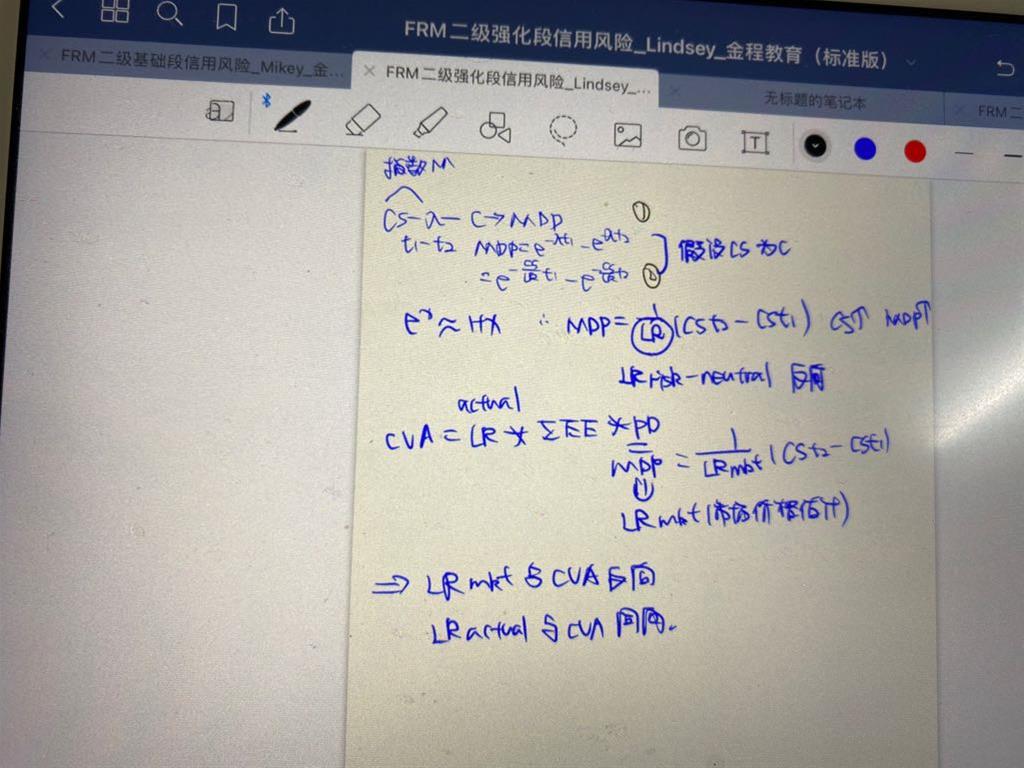 FRM二级强化段信用风险_Lindsey_金程教育（标准版）
FRM二级基础段信用风险_Mikey_金...
FRM二级强化段信用风险_Lindsey_...
无标题的笔记本
FRM二
T
指数M
CS-λ-C→MDP ①
t1-t2 MDP=e^-λt1 - e^-λt2
=e^-CS/LR t1 - e^-CS/LR t2 ② 假设CS为C
e^x≈1+x ∴ MDP=1/LR(CSt2-CSt1) CS↑ MDP↑
LR risk-neutral 反向
actual
CVA = LR * ΣEE * PD
MDP = 1/LRmkt (CSt2-CSt1)
LR mkt(市场价格估计)
⇒ LR mkt 与 CVA 反向
LR actual 与 CVA 同向.